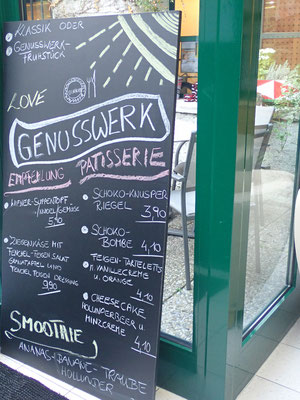 KLASSIK ODER
GENUSSWERK-
FRÜHSTÜCK
LOVE
GENUSSWERK
EMPFEHLUNG
WIENER SUPPENTOPF
-/NUDEL/GEMÜSE
5,90
ZIEGENKÄSE MIT
FENCHEL-FEIGEN SALAT
GRANATAPFEL UND
FENCHEL FEIGEN DRESSING
9,90
PATISSERIE
SCHOKO-KNUSPER
RIEGEL
3,90
SCHOKO-
BOMBE 4,10
FEIGEN-TARTELETTS
M. VANILLECREME
U. ORANGE
4,10
CHEESECAKE
HOLUNDERBEER U
MINZCREME
4,10
SMOOTHIE
ANANAS-BANANE-TRAUBE
HOLUNDER